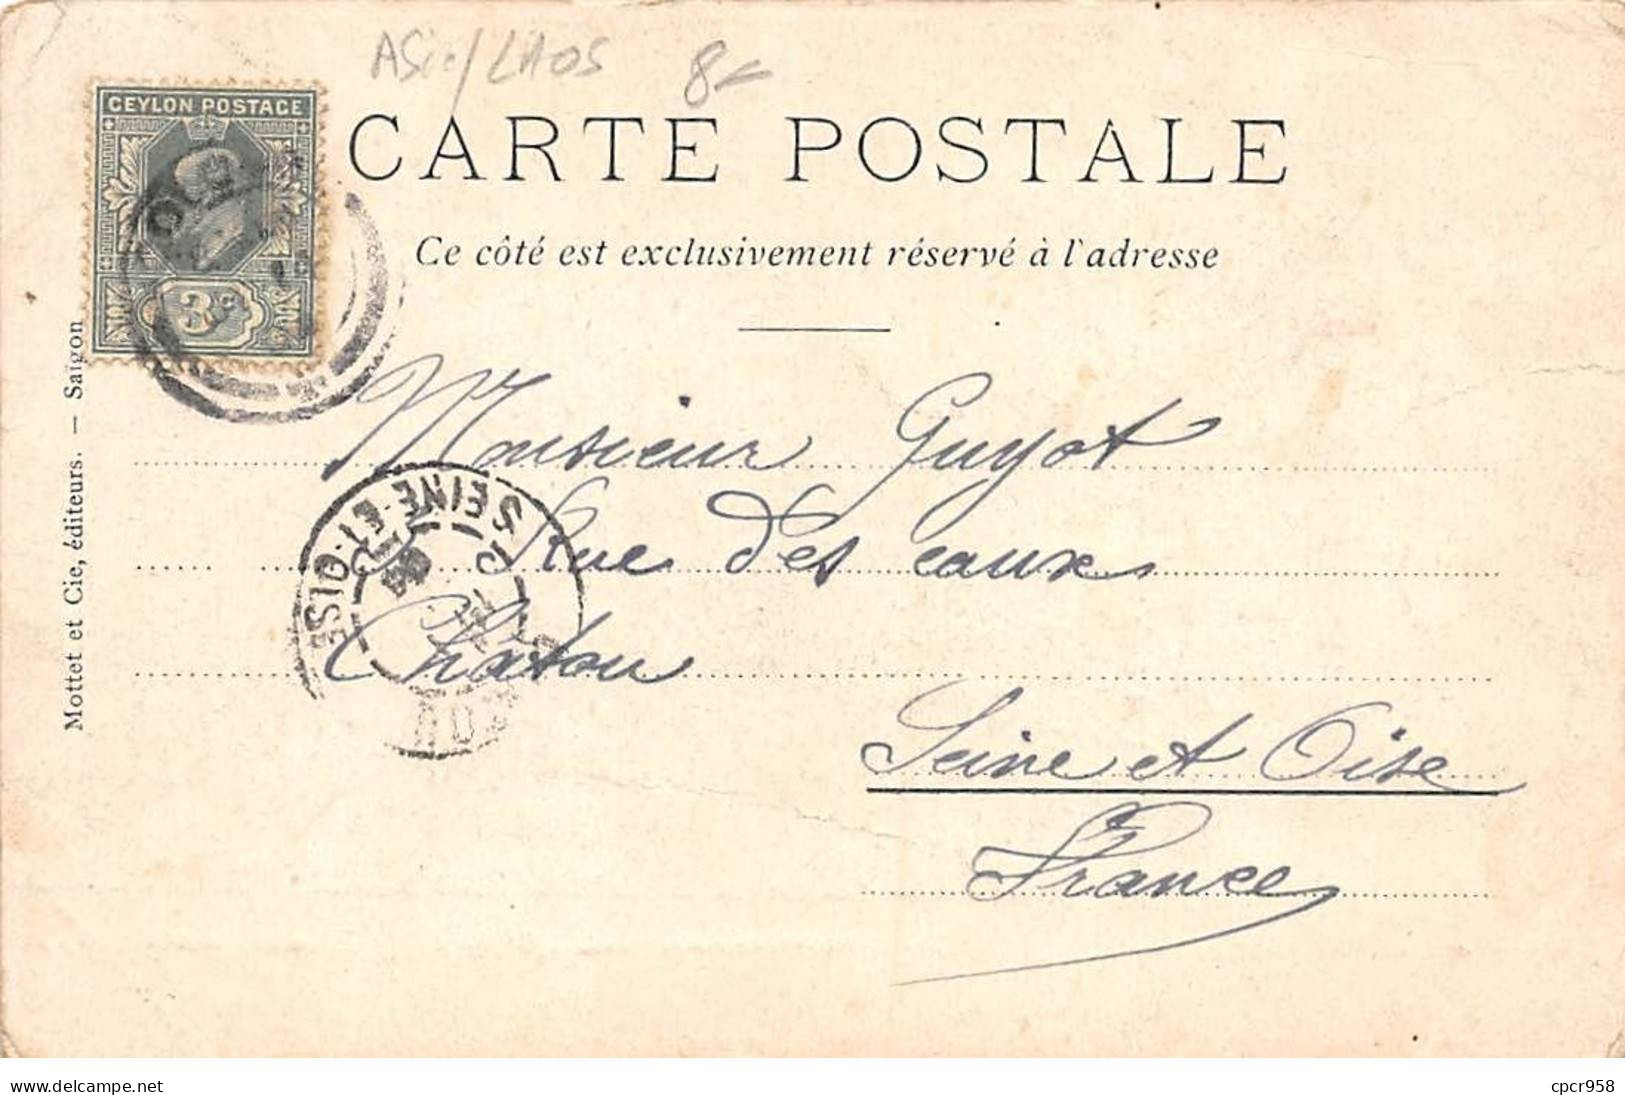 Asie/LAOS 8-
CEYLON POSTAGE
3c
CARTE POSTALE
Ce côté est exclusivement réservé à l'adresse
Mottet et Cie, éditeurs. — Saïgon
Monsieur Guyot
Rue des eaux
Chatou
Seine et Oise
France
SEINE-ET-OISE
www.delcampe.net
cpcr958